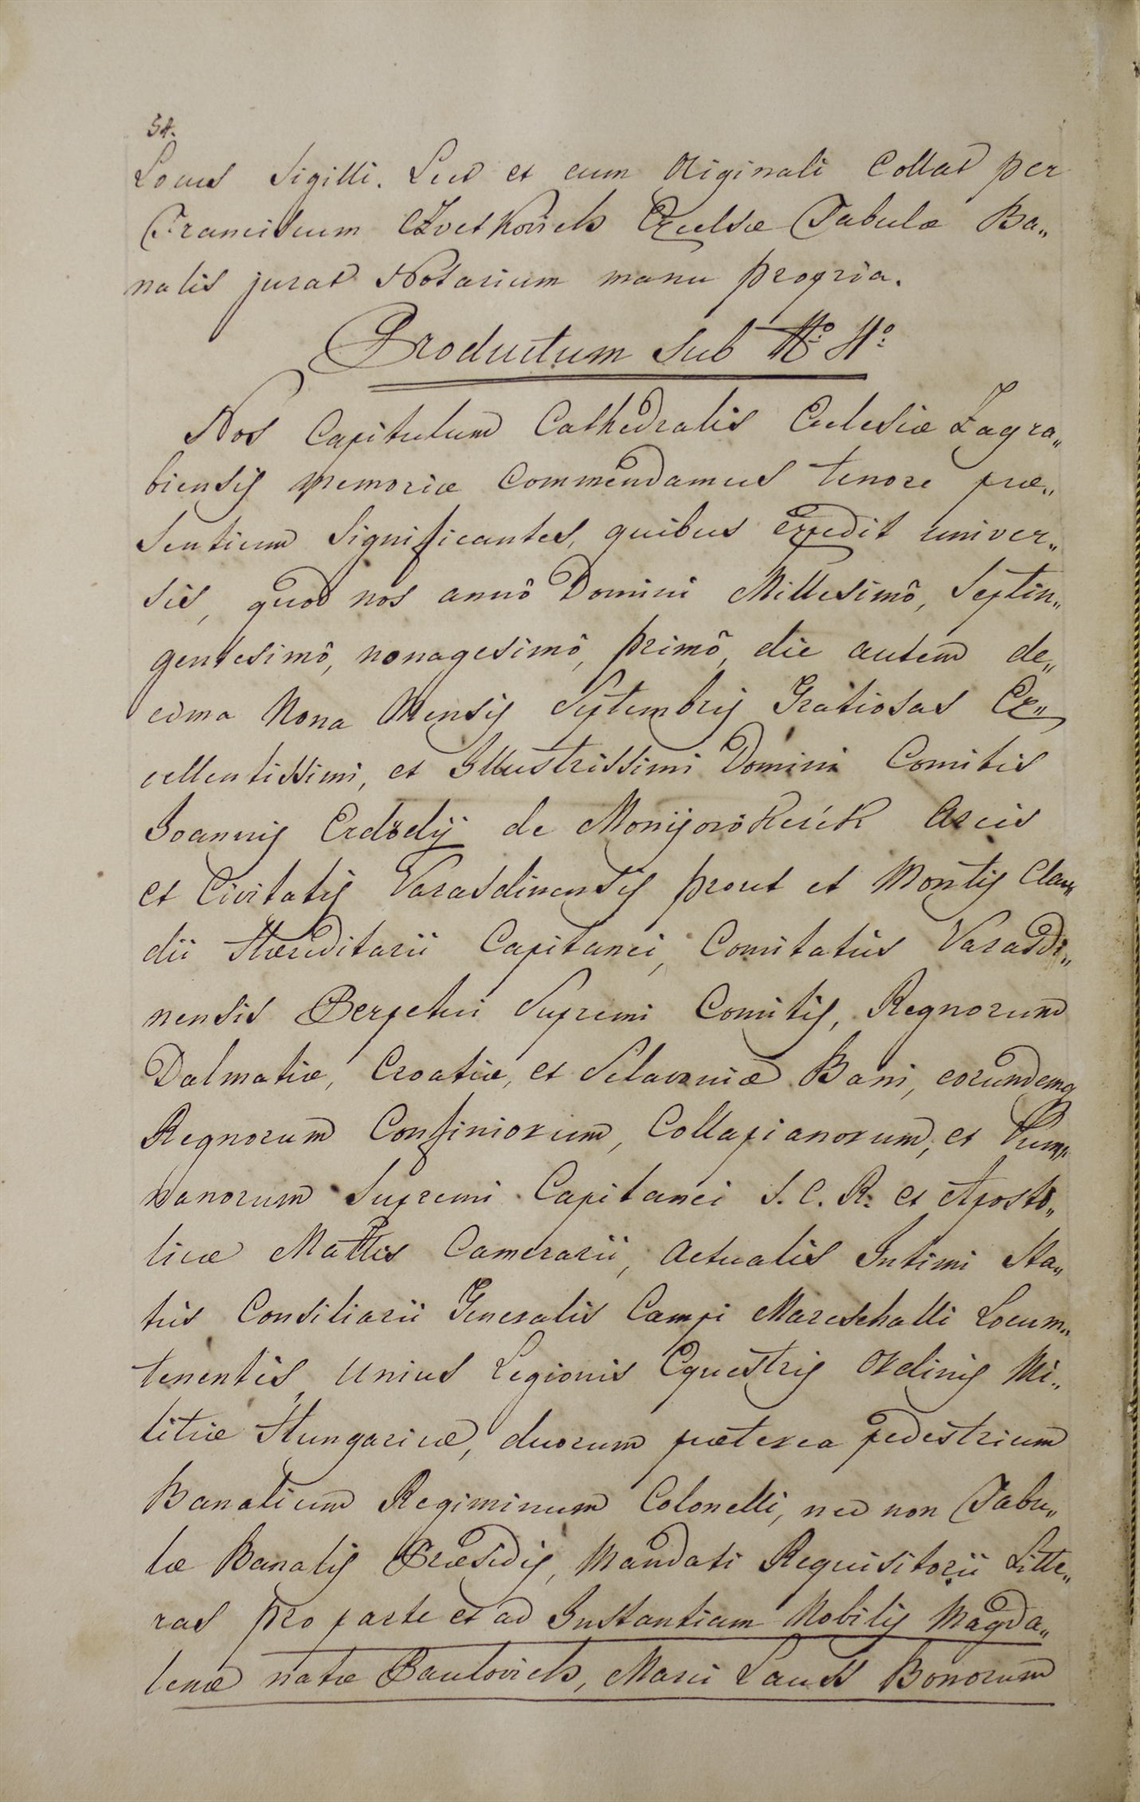 54.
Locus Sigilli. Lect et cum Originali Collat per
Franciscum Czvetkovich Excelsæ Tabulæ Ba„
nalis jurat Notarium manu propria.
Productum sub N° H°
Nos Capitulum Cathedralis Eclesiæ Zagra„
biensis memoriæ Commendamus tenore præ„
sentium Significantes, quibus expedit univer„
sis, quod nos annô Domini Millesimô, Septin„
gentesimô, nonagesimô, primô, die autem de„
cima Nona Mensis Septembris Gratiosas Ex„
cellentissimi, et Illustrissimi Domini Comitis
Joannis Erdödÿ de Monijorókerék Arcis
et Civitatis Varasdinensis prout et Montis Clau„
dii Hæreditarii Capitanei, Comitatûs Varasdi„
nensis Perpetui Supremi Comitis, Regnorum
Dalmatiæ, Croatiæ, et Sclavoniæ Bani, eorundemq
Regnorum Confiniorum, Collapianorum, et
vanorum Supremi Capitanei S. C. R. et Aposto„
licæ Mattis Camerarii, Actualis Intimi Sta„
tûs Consiliarii Generalis Campi Mareschalli Locum„
tenentis, Unius Legionis Equestris Ordinis Mi„
litiæ Hungaricæ, duorum præterea pedestrium
Banalium Regiminum Colonelli, nec non Tabu„
læ Banalis Præsidis, Mandati Requisitorii Litte„
ras pro parte et ad Instantiam Nobilis Magda„
lenæ natæ Paulovich, Marci Bonorum